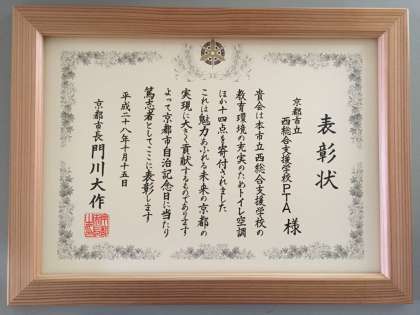 表彰状
京都市立
西総合支援学校PTA 様
貴会は本市立西総合支援学校の
教育環境の充実のためトイレ空調
ほか十四点を寄付されました
これは魅力あふれる未来の京都の
実現に大きく貢献するものであります
よって京都市自治記念日に当たり
篤志者としてここに表彰します
平成二十八年十月十五日
京都市長 門川大作